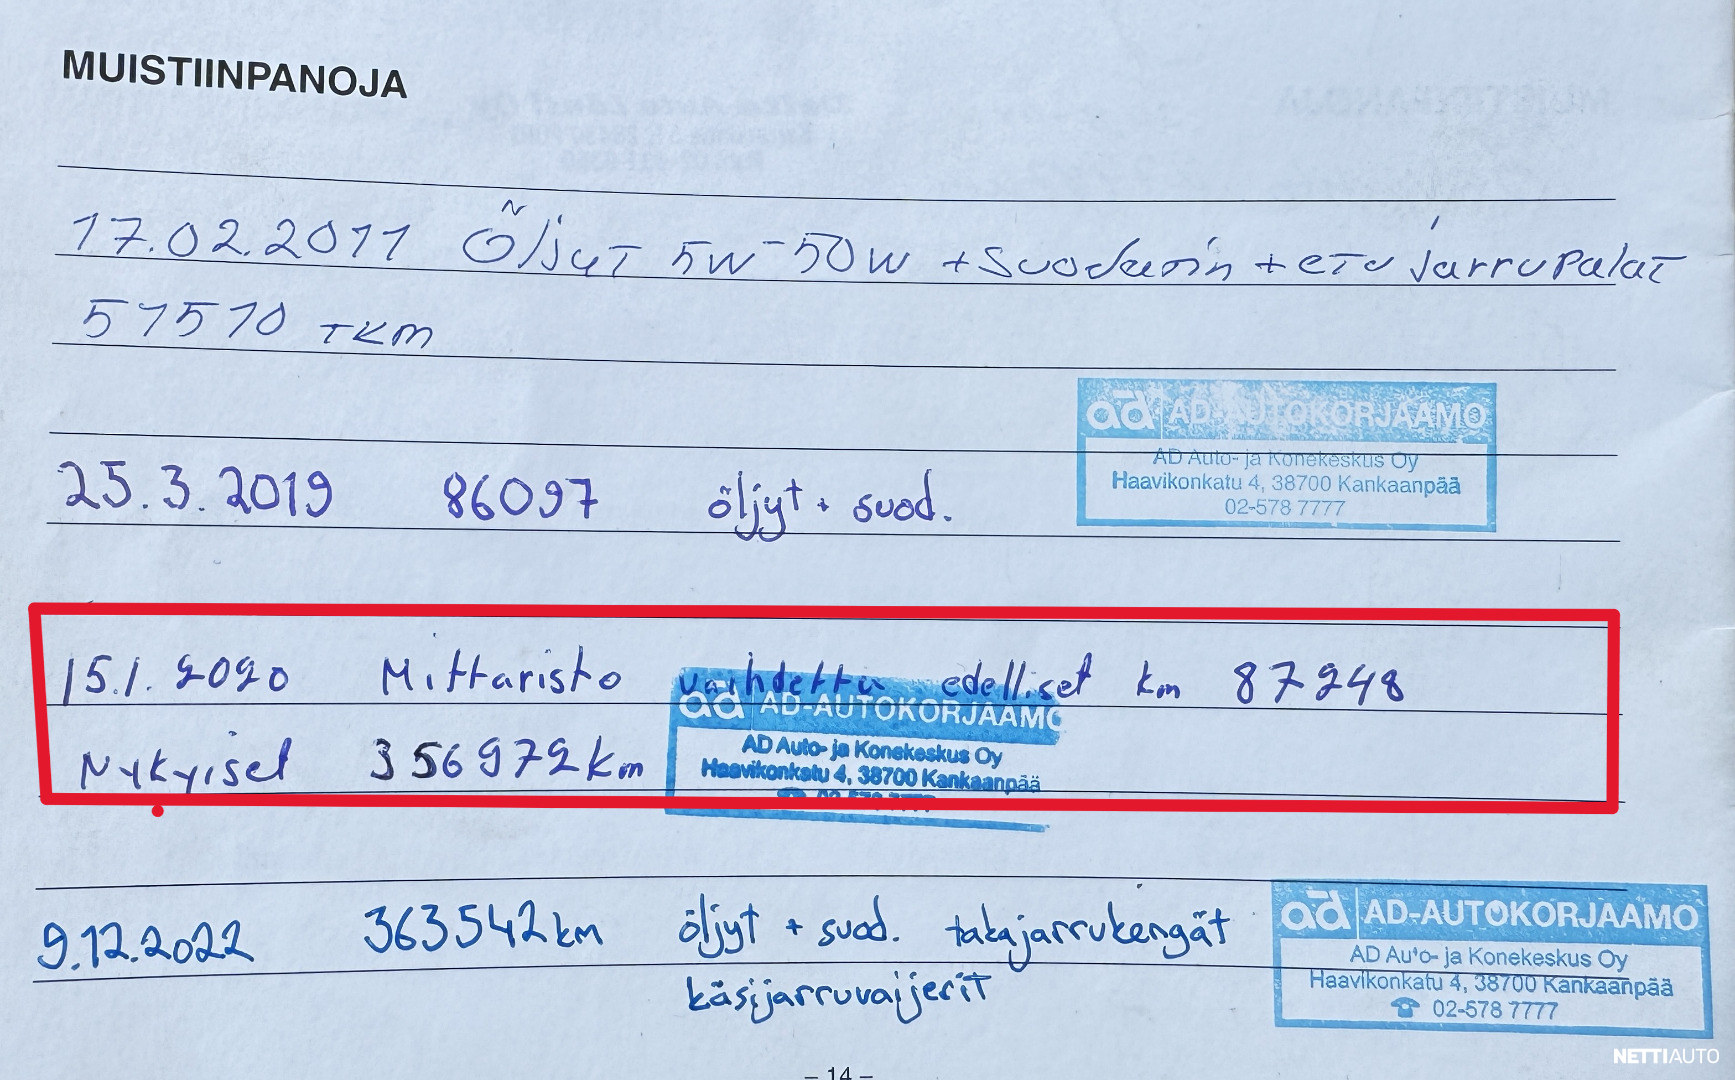 MUISTIINPANOJA
17.02.2011 Öljyt 5W-50W + Suodatin + etu jarrupalat
57570 TKM
ad AD-AUTOKORJAAMO
AD Auto- ja Konekeskus Oy
Haavikonkatu 4, 38700 Kankaanpää
02-578 7777
25.3.2019 86097 öljyt + suod.
15.1.2020 Mittaristo vaihdettu edelliset km 87248
ad AD-AUTOKORJAAMO
AD Auto- ja Konekeskus Oy
Haavikonkatu 4, 38700 Kankaanpää
☎ 02-578 7777
Nykyiset 356972 km
9.12.2022 363542 km öljyt + suod. takajarrukengät
käsijarruvaijerit
ad AD-AUTOKORJAAMO
AD Auto- ja Konekeskus Oy
Haavikonkatu 4, 38700 Kankaanpää
☎ 02-578 7777
– 14 –
NETTIAUTO